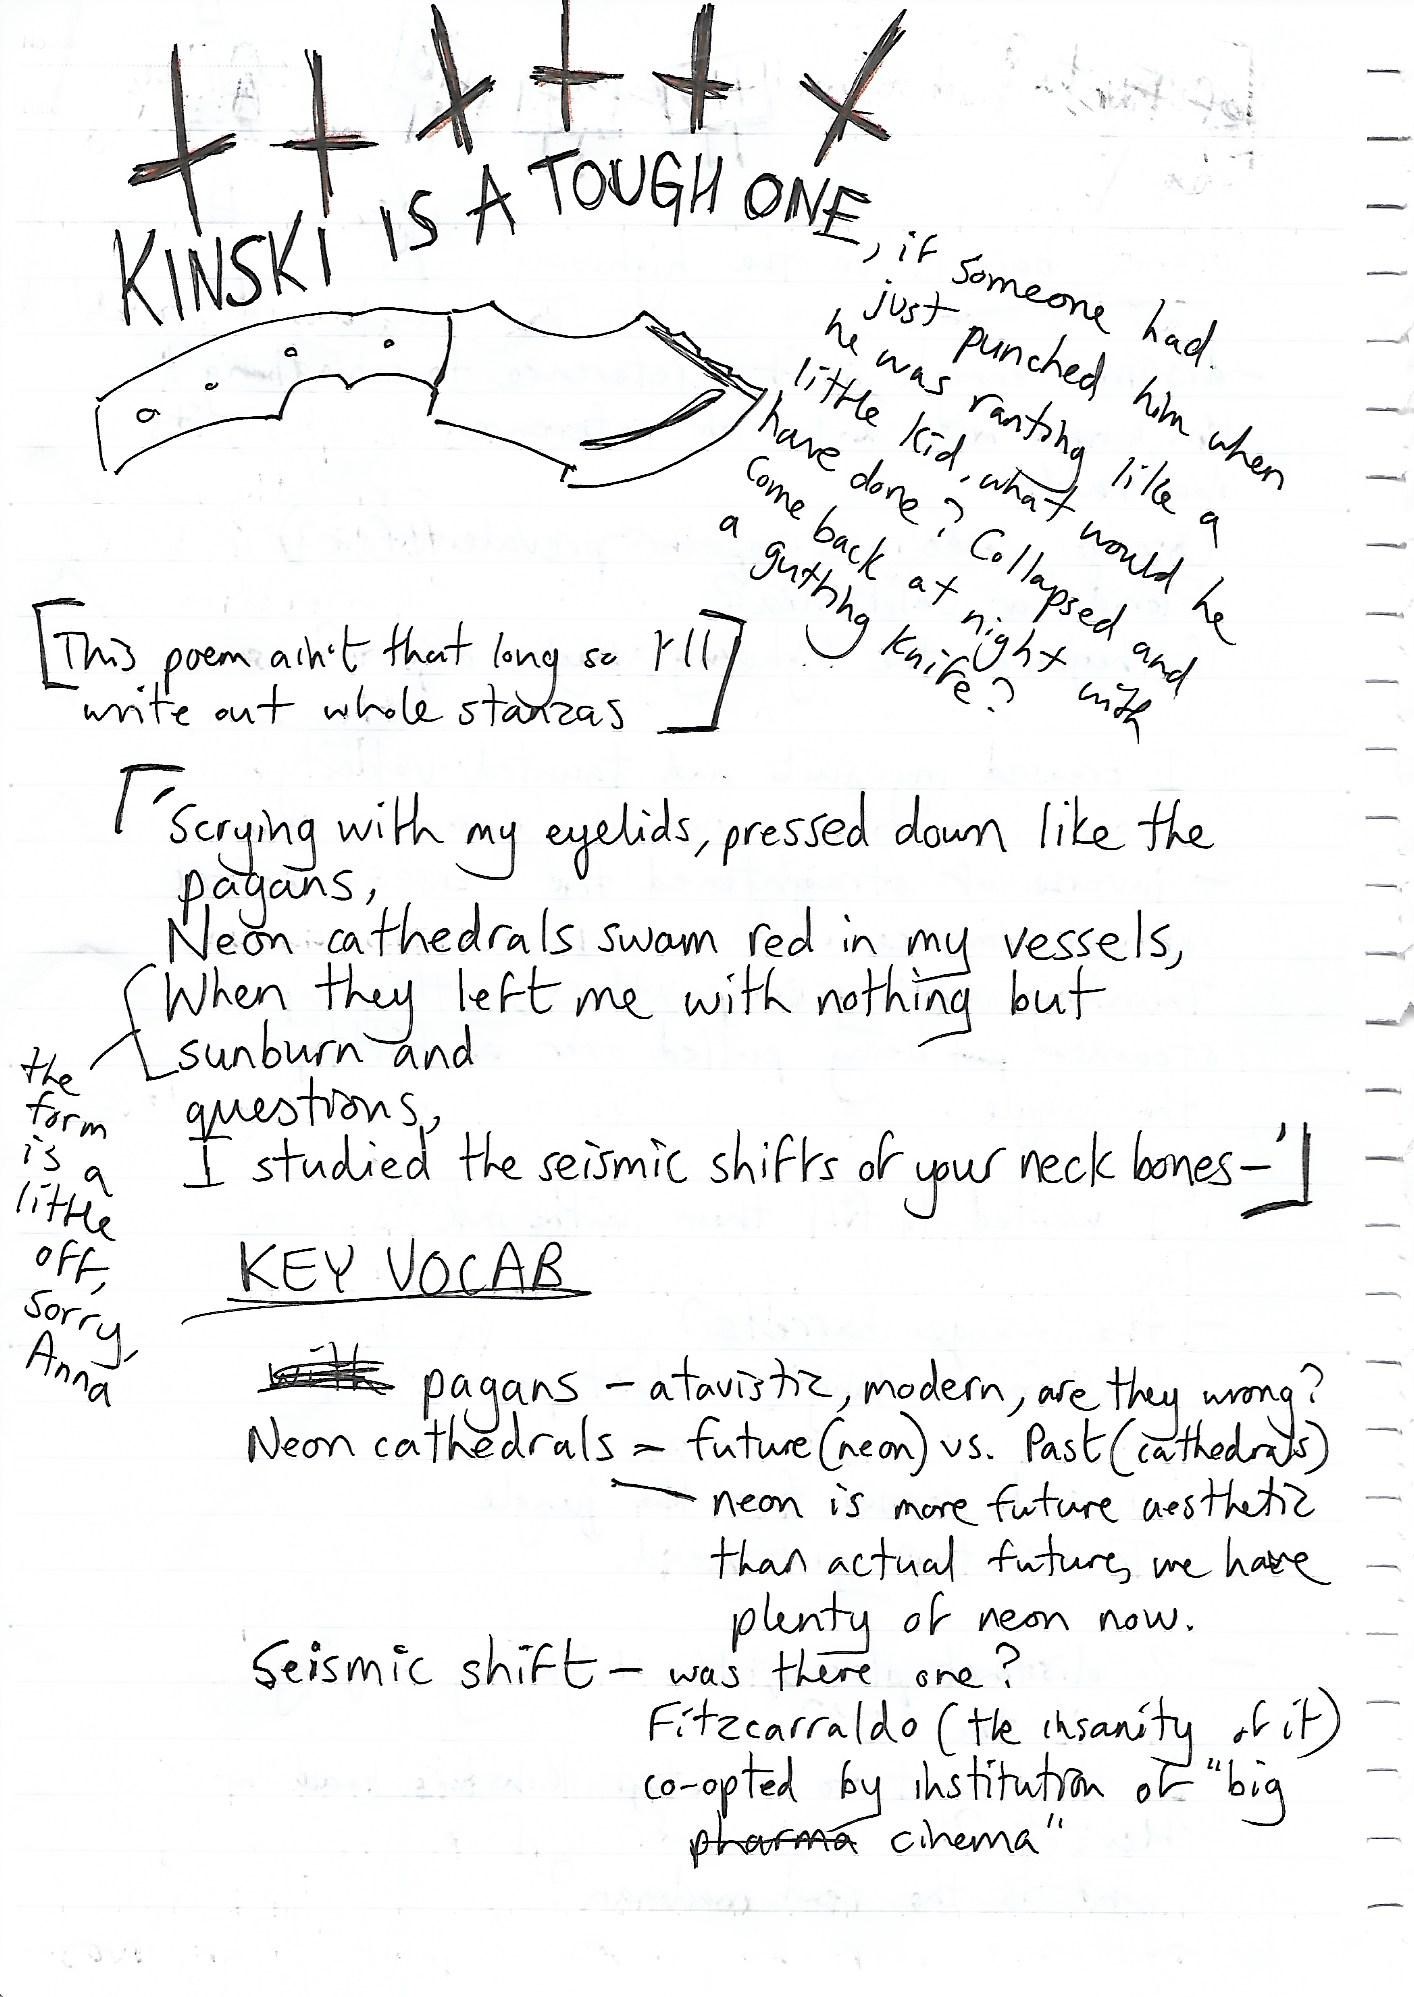 KINSKI IS A TOUGH ONE, if someone had
just punched him when
he was ranting like a
little kid, what would he
have done? Collapsed and
come back at night with
a gutting knife?
[This poem ain't that long so I'll
write out whole stanzas]
'Scrying with my eyelids, pressed down like the
pagans,
Neon cathedrals swam red in my vessels,
When they left me with nothing but
sunburn and
questions,
I studied the seismic shifts of your neck bones–'
the
form
is
a
little
off,
sorry,
Anna
KEY VOCAB
with pagans – atavistic, modern, are they wrong?
Neon cathedrals – future (neon) vs. Past (cathedrals)
neon is more future aesthetic
than actual future, we have
plenty of neon now.
Seismic shift – was there one?
Fitzcarraldo (the insanity of it)
co-opted by institution of "big
pharma cinema"